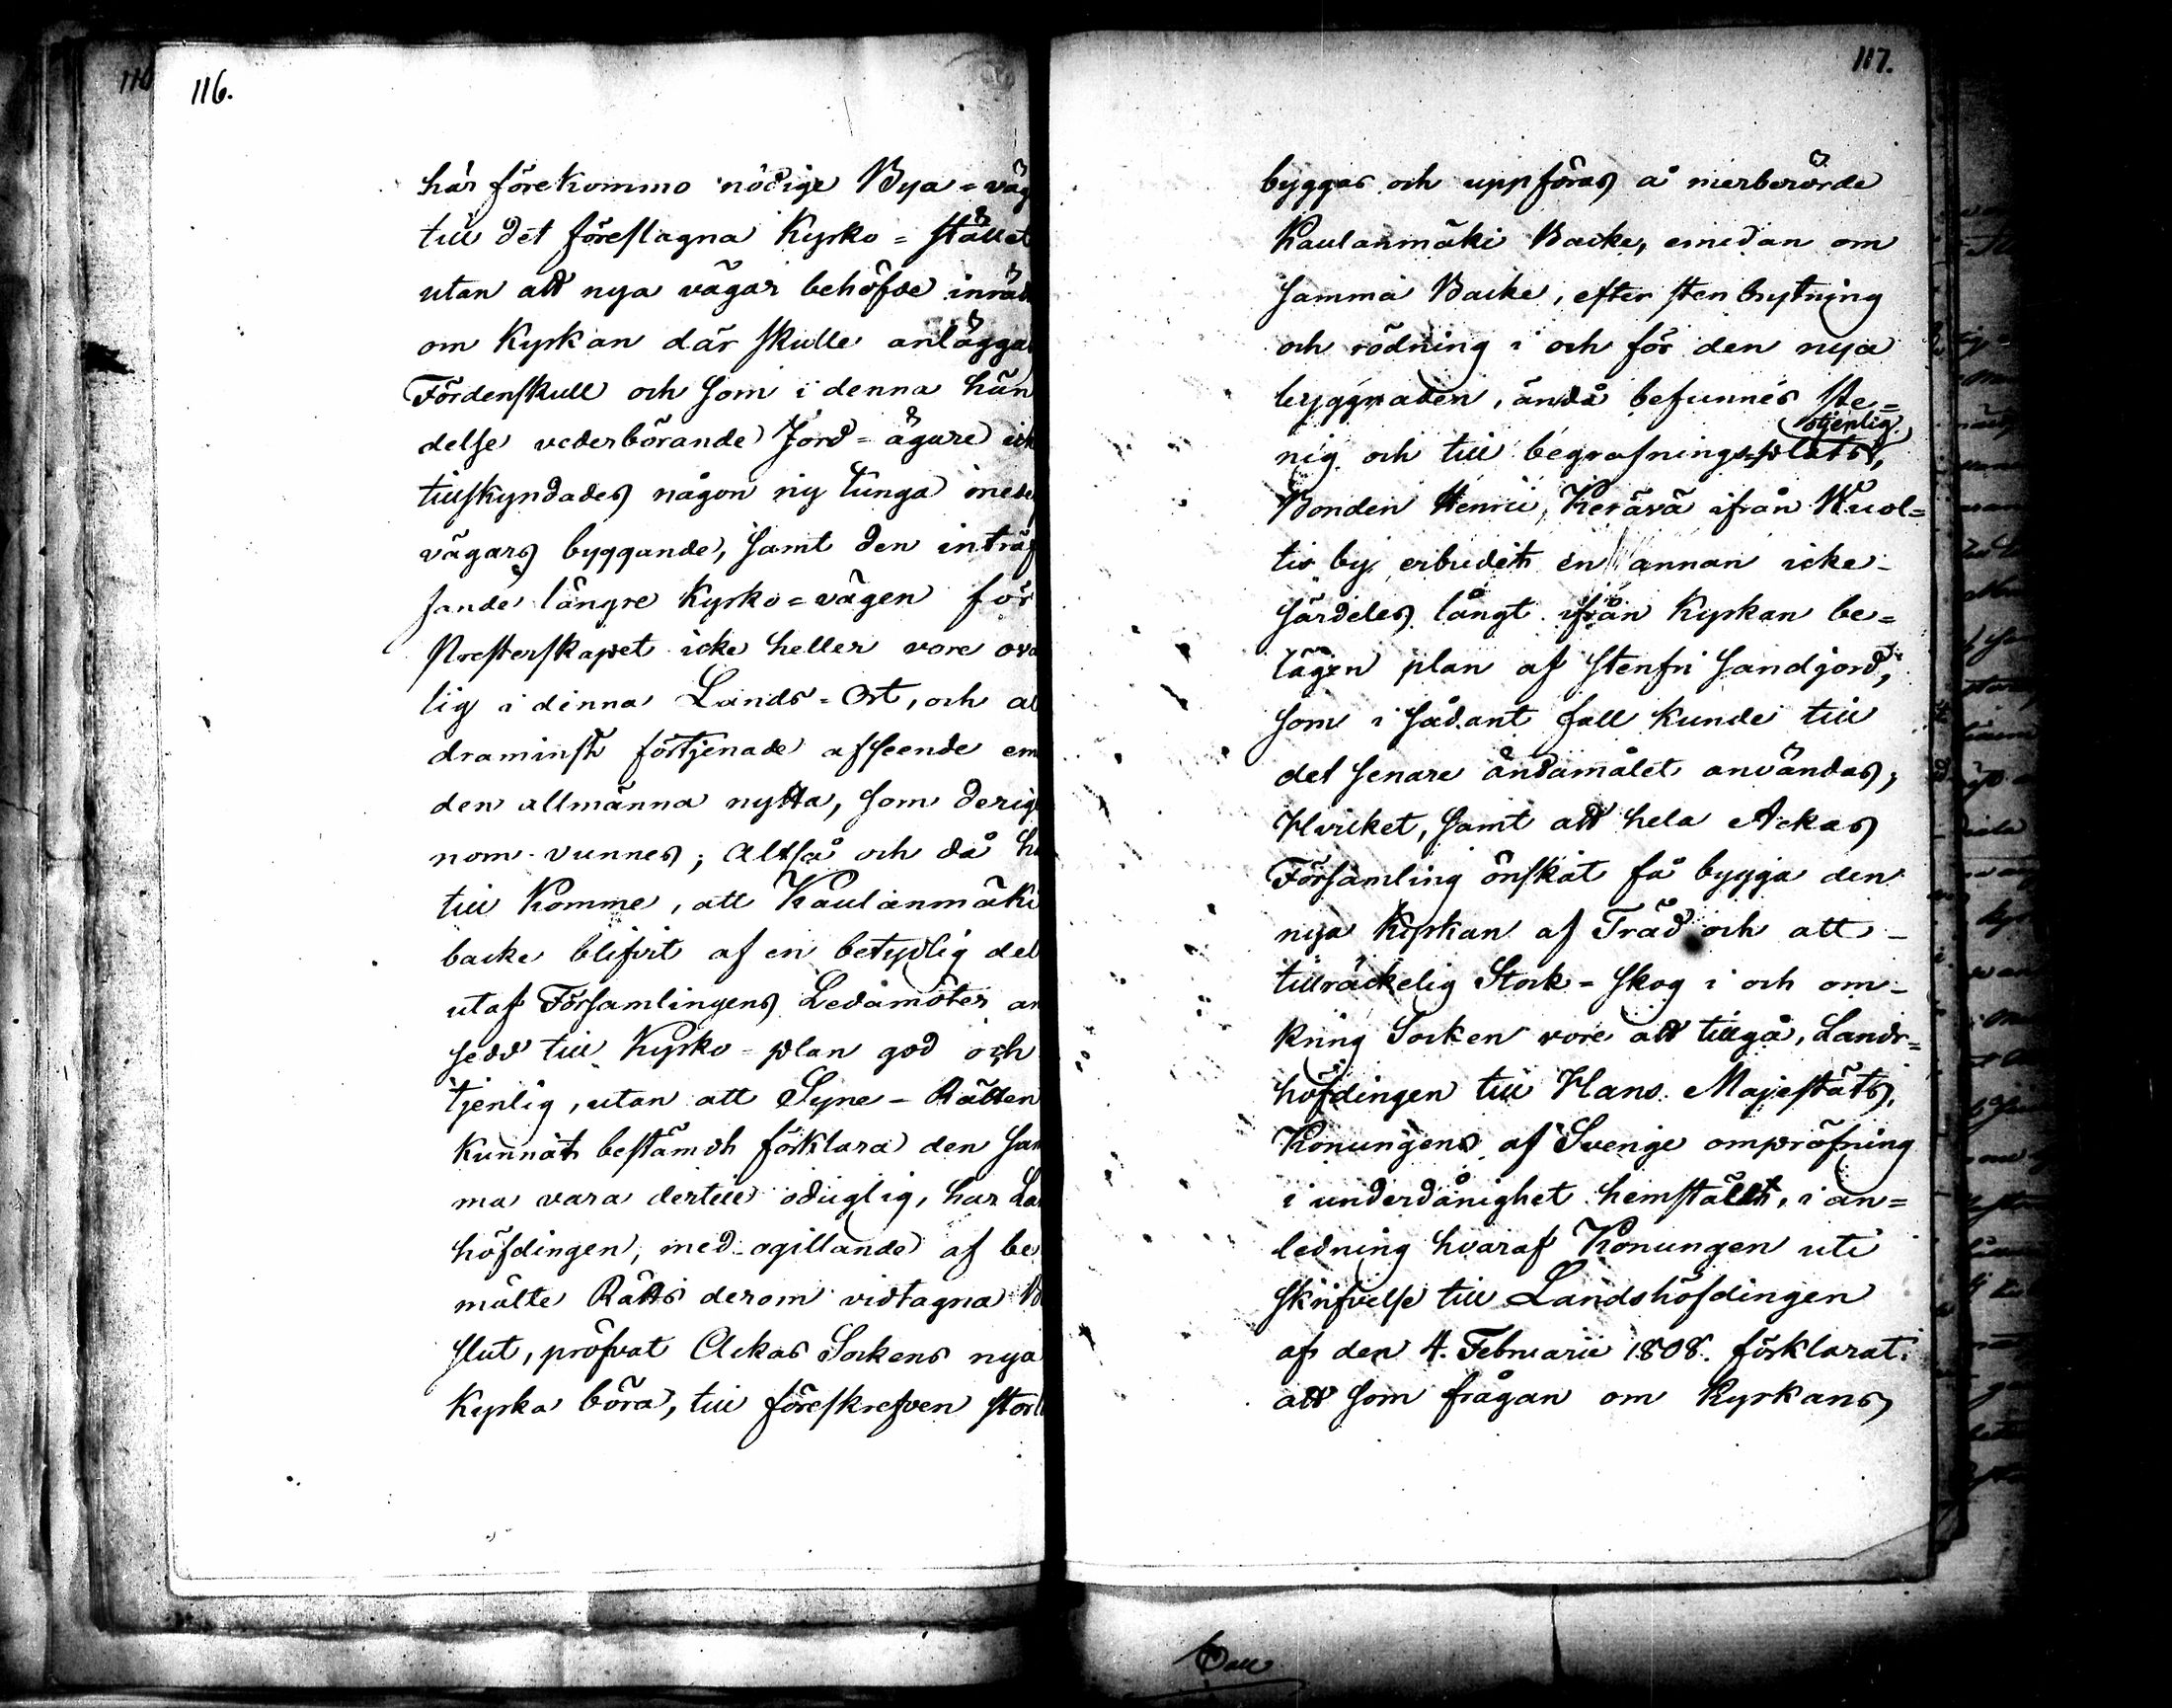 116.
här förekommo nödige Bya=väg
till det föreslagna Kyrko=stället
utan att nya vägar behöfde inrät
om Kyrkan där skulle anläggas
Fördenskull och som i denna hän
delse vederbörande Jord=ägare ick
tillskyndades någon ny tunga med
vägars byggande, samt den inträf
fande längre Kyrko=vägen för
Presterskapet icke heller vore ova
lig i denna Lands=Ort, och al
draminst förtjenade afseende em
den allmänna nytta, som derige
nom vunnes; Altså och då hä
till komme, att Kaulanmäki
backe blifvit af en betydlig del
utaf Församlingens Ledamöter an
sedd till Kyrko-plan god och
tjenlig, utan att Syne-Rätten
kunnat bestämdt förklara den sam
ma vara dertill oduglig, har La
höfdingen, med ogillande af be
mälte Rätts derom vidtagna Be
slut, pröfvat Ackas Sockens nya
Kyrka böra, till föreskrefven storl
117.
byggas och uppföras å merberörde
Kaulanmäki Backe, emedan om
samma Backe, efter stenbrytning
och rödning i och för den nya
byggnaden, ändå befunnes ste=
otjenlig
nig och till begrafnings-plats,
Bonden Henric Kerävä ifrån Kuol=
tis by erbudit en annan icke-
särdeles långt ifrån Kyrkan be=
lägen plan af stenfri sandjord,
som i sådant fall kunde till
det senare ändamålet användas;
Hvilket, samt att hela Ackas
Församling önskat få bygga den
nya Kyrkan af Träd och att-
tillräckelig Stock-skog i och om-
kring Socken vore att tillgå, Lands=
höfdingen till Hans Majestäts,
Konungens af Sverige ompröfning
i underdånighet hemställt, i an=
ledning hvaraf Konungen uti
skrifvelse till Landshöfdingen
af den 4. Februarii 1808. förklarat:
att som frågan om Kyrkans